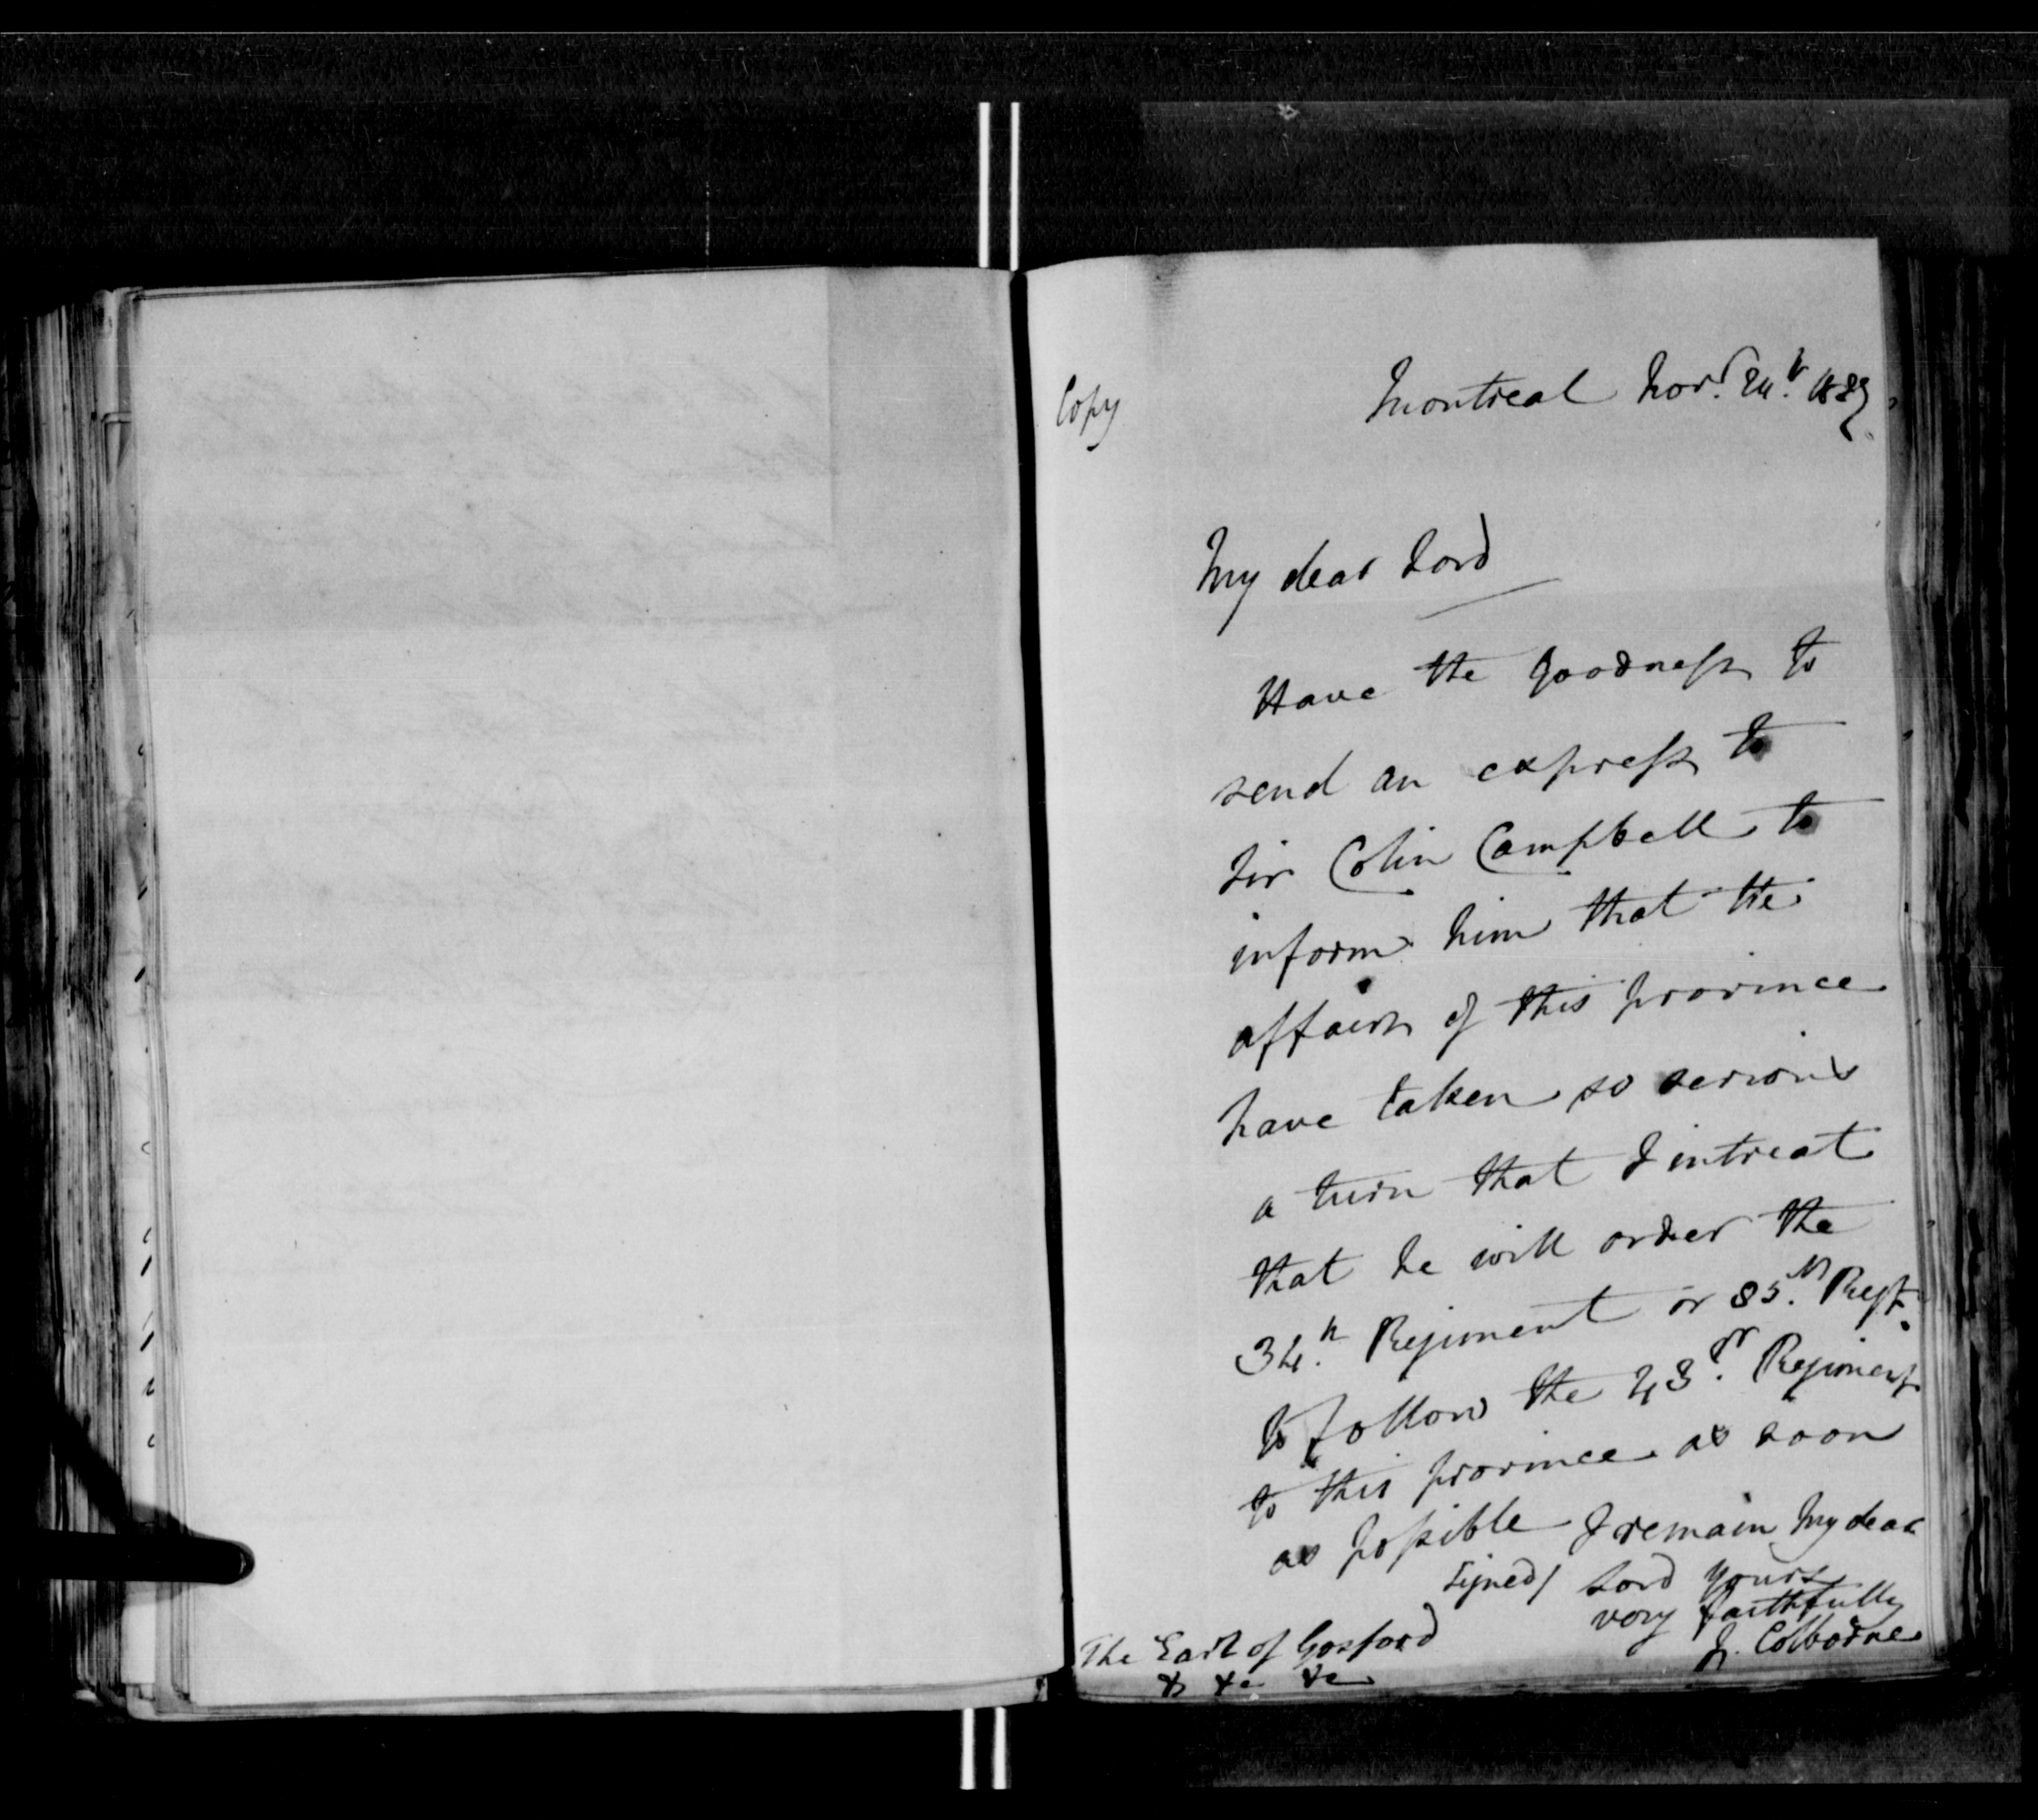 Copy
Montreal Novr. 24th. 1837
My dear Lord
Have the goodness to
send an express to
Sir Colin Campbell to
inform him that the
affairs of this province
have taken so serious
a turn that I intreat
that he will order the
34.th Regiment or 85.th Regt.
to follow the 43.rd Regiment
to this province as soon
as possible I remain My dear
Signed/ Lord yours
very faithfully
J. Colborne
The Earl of Gosford
&c &c &c